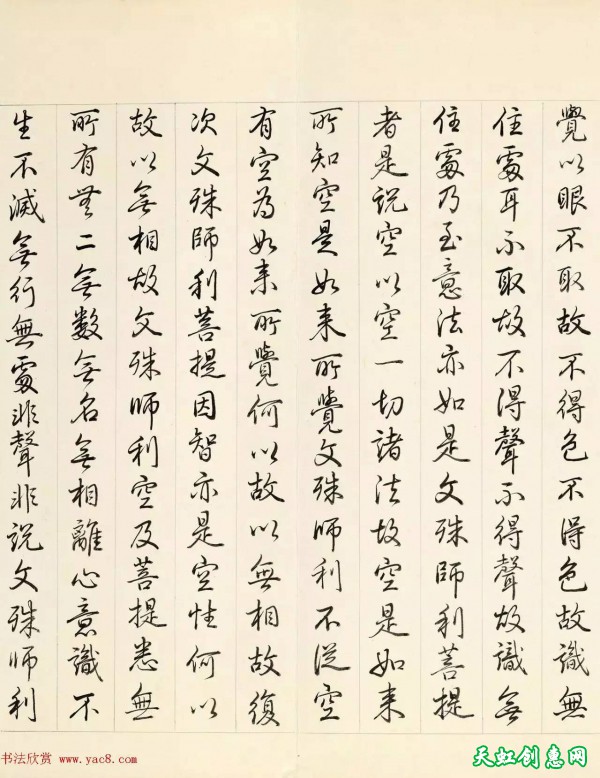 覺以眼不取故不得色不得色故識無
住處耳不取故不得聲不得聲故識無
住處乃至意法亦如是文殊師利菩提
者是說空以空一切諸法故空是如来
所知空是如来所覺文殊師利不從空
有空為如来所覺何以故以無相故復
次文殊師利菩提因智亦是空性何以
故以無相故文殊師利空及菩提悉無
所有無二無数無名無相離心意識不
生不滅無行無處非聲非説文殊師利
书法欣赏 www.yac8.com
天虹创惠网